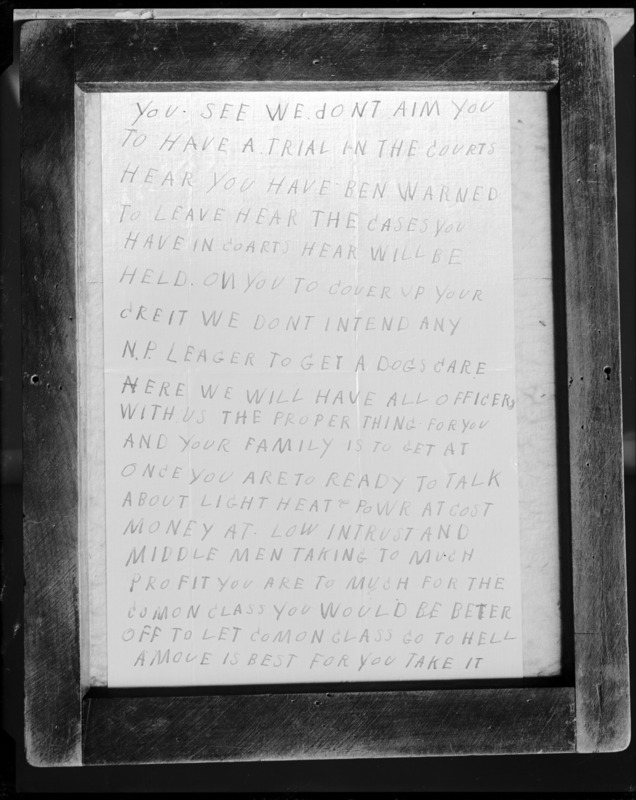 YOU. SEE WE. dONT AIM YOU
TO HAVE A. TRIAL IN THE COURTS
HEAR YOU HAVE BEN WARNED
TO LEAVE HEAR THE CASES YOU
HAVE IN COARTS HEAR WILL BE
HELD. ON YOU TO COVER UP YOUR
CREIT WE DONT INTEND ANY
N.P. LEAGER TO GET A DOGS CARE
HERE WE WILL HAVE ALL OFFICERS
WITH US THE PROPER THING FOR YOU
AND YOUR FAMILY IS TO GET AT
ONCE YOU ARE TO READY TO TALK
ABOUT LIGHT HEAT & POWR AT COST
MONEY AT. LOW INTRUST AND
MIDDLE MEN TAKING TO MUCH
PROFIT YOU ARE TO MUCH FOR THE
COMON CLASS YOU WOULD BE BETER
OFF TO LET COMON CLASS GO TO HELL
A MOVE IS BEST FOR YOU TAKE IT